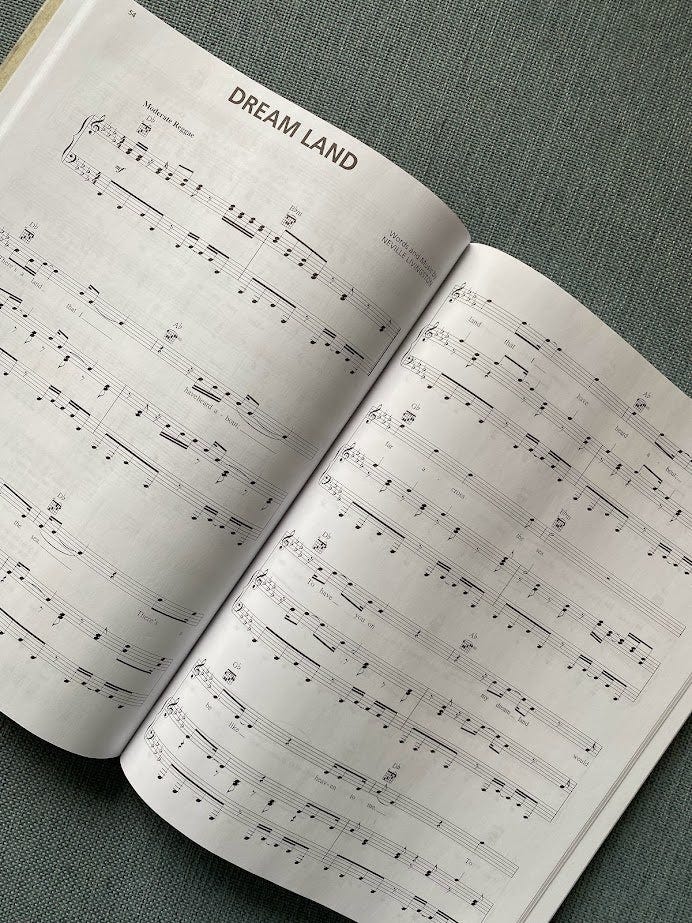 54
DREAM LAND
Words and Music by
NEVILLE LIVINGSTON
Moderate Reggae
D♭
mf
B♭m
D♭ A♭
There's a land that have heard a - bout
D♭
the sea. There's a
land that I have heard a - bout
A♭
G♭ B♭m
far a - cross the sea.
D♭ A♭
To have you on my dream - land would
G♭ D♭
be like heav - en to me. To